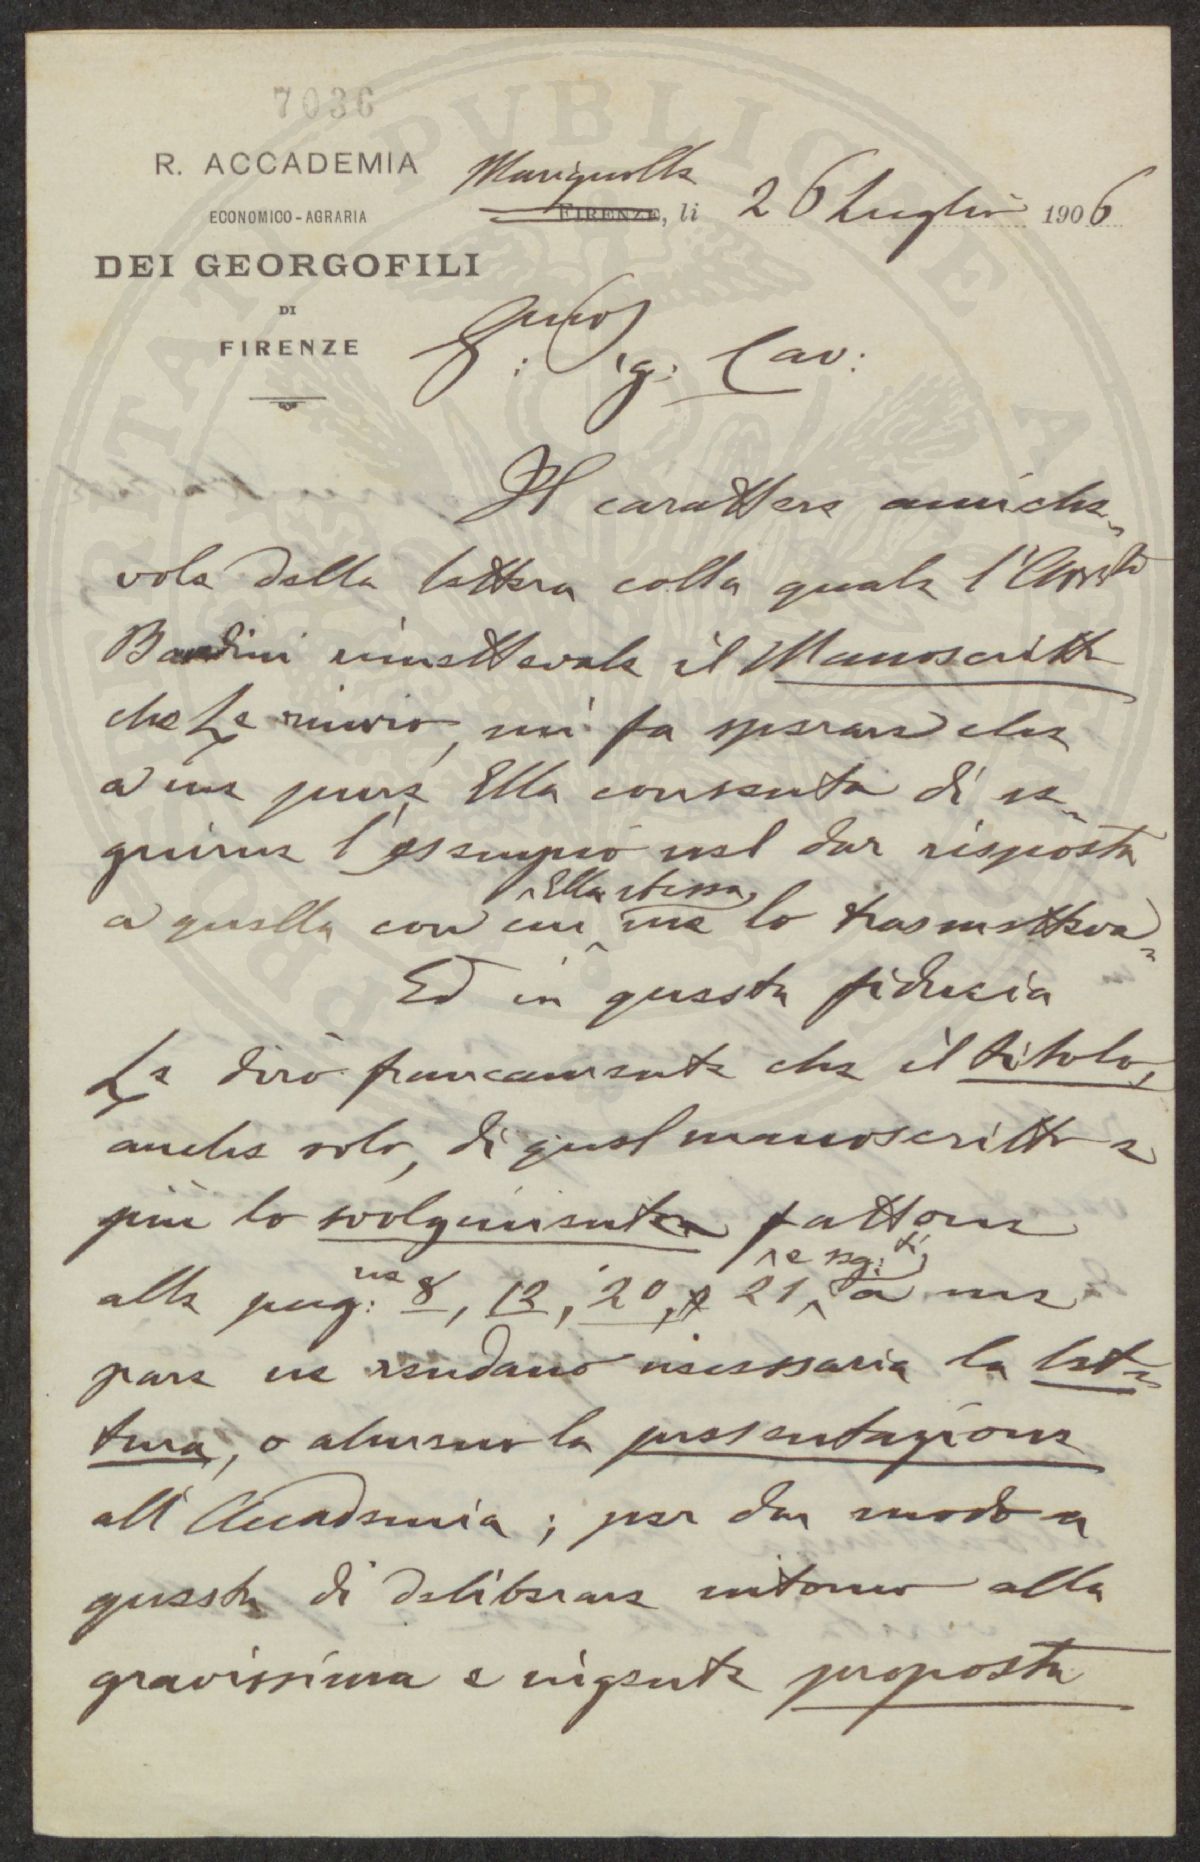 7036
R. ACCADEMIA
ECONOMICO-AGRARIA
DEI GEORGOFILI
DI
FIRENZE
Marignolle
FIRENZE, li 26 Luglio 1906
Sig: Cav:
Il carattere amiche-
vole della lettera colla quale l'
Bandini rimettevale il Manoscritto
che Le rinvio, mi fa sperare che
a me pure Ella consenta di se-
guirne l'esempio nel dar risposta
a quella con cui Ella stessa me lo trasmetteva.
Ed in questa fiducia
Le dirò francamente che il titolo,
anche solo, di quel manoscritto e
più lo svolgimento fattone
alle pag:ne 8, 12, 20, 21 e seg:ti, a me
pare ne rendano necessaria la let-
tura, o almeno la presentazione
all'Accademia; per dar modo a
questa di deliberare intorno alla
gravissima e urgente proposta